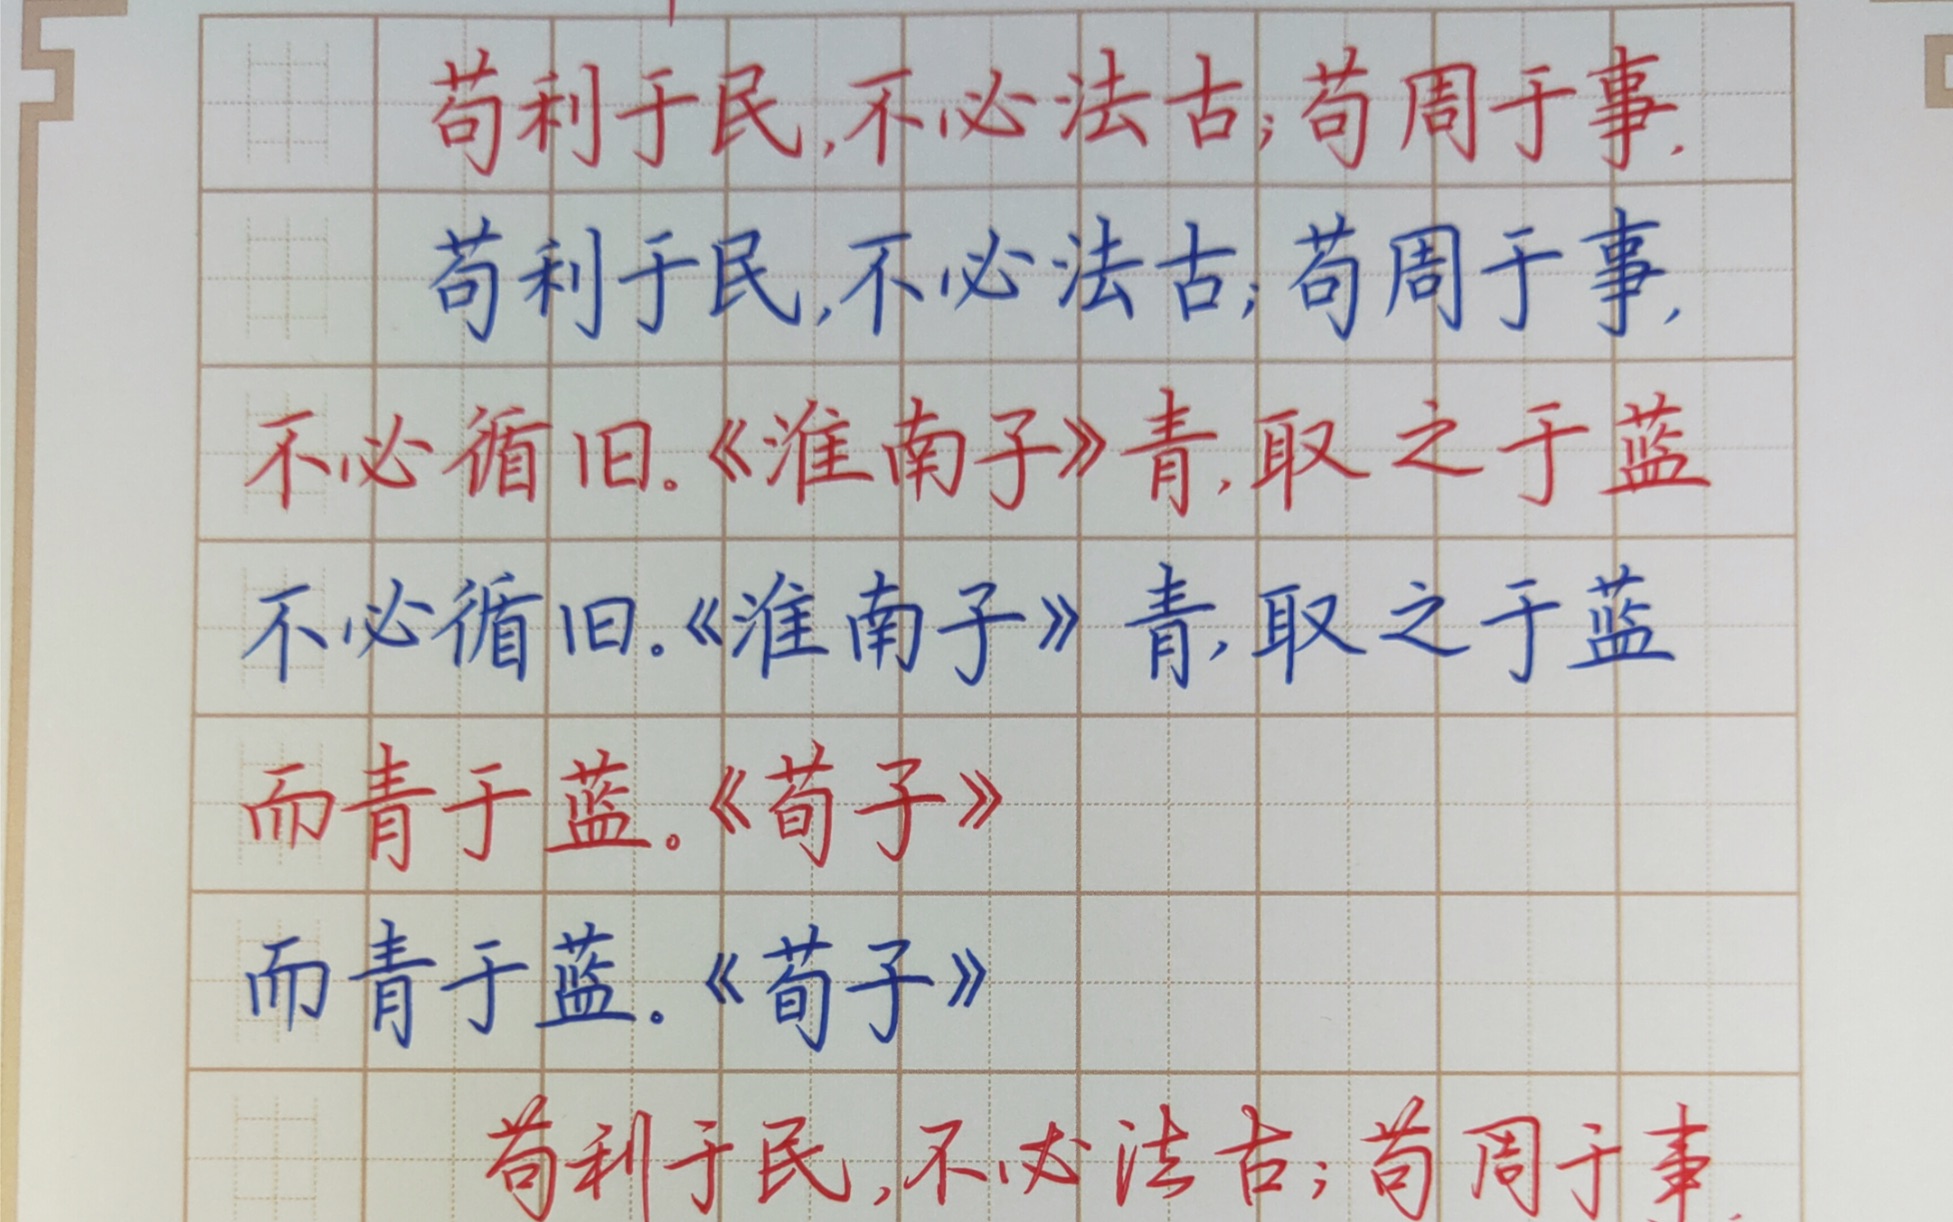 苟利于民,不必法古;苟周于事,
苟利于民,不必法古;苟周于事,
不必循旧。《淮南子》青,取之于蓝
不必循旧。《淮南子》青,取之于蓝
而青于蓝。《荀子》
而青于蓝。《荀子》
苟利于民,不必法古;苟周于事,